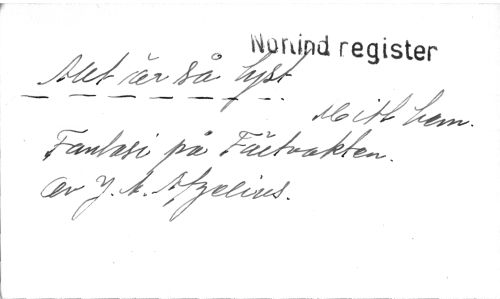 Norind register
Alt är så tyst
Mitt hem.
Fantasi på Fältvakten.
av J. A. Afzelius.